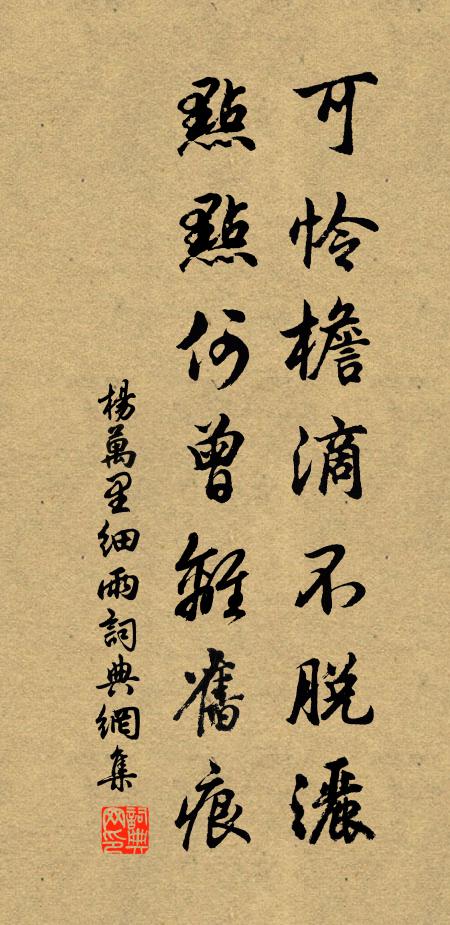 可怜檐滴不脱灑
點點何曾離舊痕
楊萬里細雨詞典網集
詞典网印